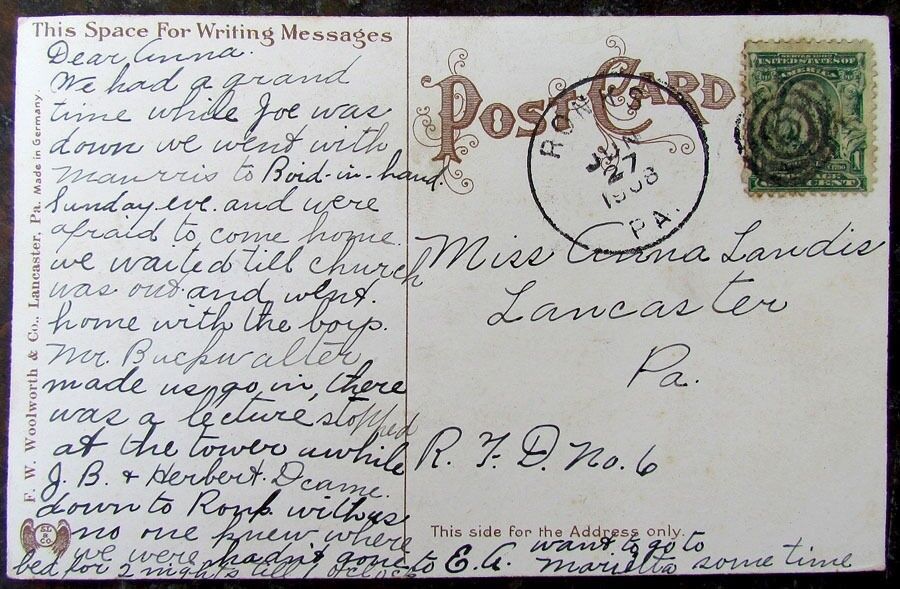 This Space For Writing Messages
Dear Anna.
We had a grand
time while Joe was
down we went with
Maurris to Bird-in-hand.
Sunday eve. and were
afraid to come home.
we waited till church
was out and went.
home with the boys.
Mr. Buckwalter
made us go in, there
was a lecture stopped
at the tower awhile
J. B. & Herbert. D came.
down to Ronks with us
no one knew where
we were hadn't gone to
bed for 2 nights till 1 oclock
E. A. want to go to
Marietta some time
F. W. Woolworth & Co., Lancaster, Pa. Made in Germany.
POST CARD
RONKS
JUN
27
1908
PA.
SERIES 1902
UNITED STATES OF
AMERICA
Miss Anna Landis
Lancaster
Pa.
R. F. D. No. 6
This side for the Address only.